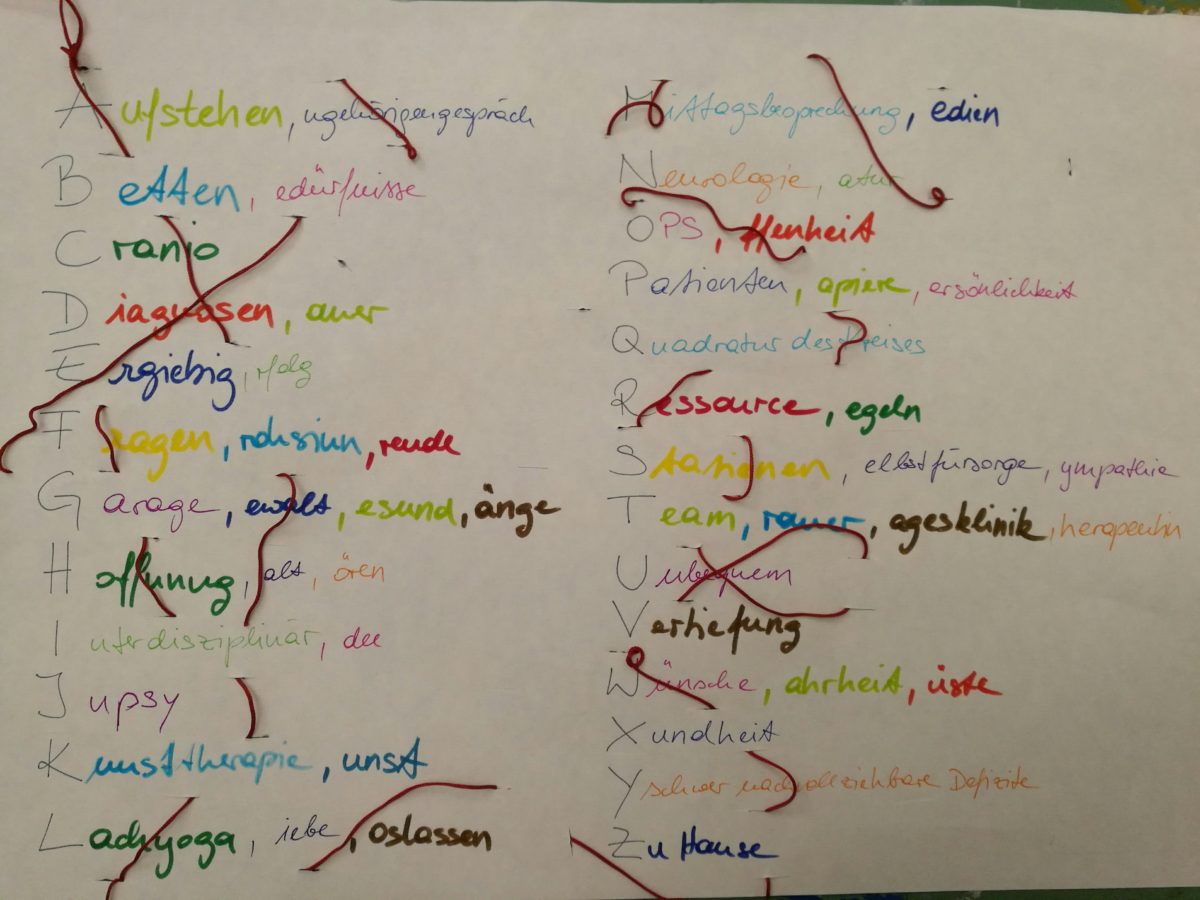 A ufstehen, ngehörigengespräch
B etten, edürfnisse
C ranio
D iagnosen, auer
E rgiebig, rfolg
F ragen, rohsinn, reude
G arage, ewalt, esund, änge
H offnung, alt, ören
I nterdisziplinär, dee
J upsy
K unsttherapie, unst
L achyoga, iebe, oslassen
M ittagsbesprechung, edien
N eurologie, atur
O PS, ffenheit
P atienten, apiere, ersönlichkeit
Q uadratur des Kreises
R essource, egeln
S tationen, elbstfürsorge, ympathie
T eam, rauer, agesklinik, herapeutin
U nbequem
V ertiefung
W ünsche, ahrheit, üste
X undheit
Y schwer nachvollziehbare Defizite
Z u Hause